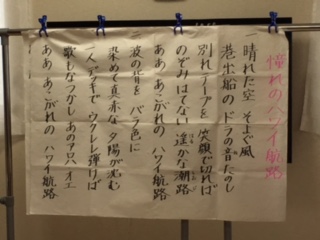 憧れのハワイ航路
一 晴れた空 そよぐ風
港出船の ドラの音たのし
別れテープを 笑顔で切れば
のぞみはてない 遥かな潮路
ああ ああこがれの ハワイ航路
二 波の背を バラ色に
染めて真赤な 夕陽が沈む
一人デッキで ウクレレ弾けば
歌もなつかし あのアロハオエ
ああ ああこがれの ハワイ航路